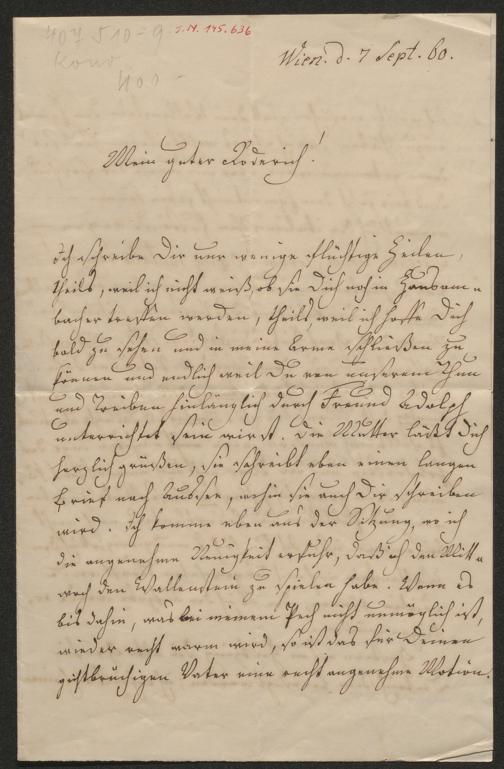 407510-9 I.N. 145.636
Konv
400 -
Wien. d. 7 Sept. 60.
Mein guter Roderich!
Ich schreibe Dir nur wenige flüchtige Zeilen,
theils, weil ich nicht weiß, ob sie Dich noch in
bacher treffen werden, theils, weil ich hoffe Dich
bald zu sehen und in meine Arme schließen zu
können und endlich weil Du von unserem Thun
und Treiben hinlänglich durch Freund Adolph
unterrichtet sein wirst. Die Mutter läßt Dich
herzlich grüßen, sie schreibt eben einen langen
Brief nach Aussee, wohin sie auch Dir schreiben
wird. Ich komme eben aus der Sitzung, wo ich
die angenehme Neuigkeit erfuhr, daß ich den Mitt=
woch den Wallenstein zu spielen habe. Wenn es
bis dahin, was bei meinem Pech nicht unmöglich ist,
wieder recht warm wird, so ist das für Deinen
Vater eine recht angenehme Motion.